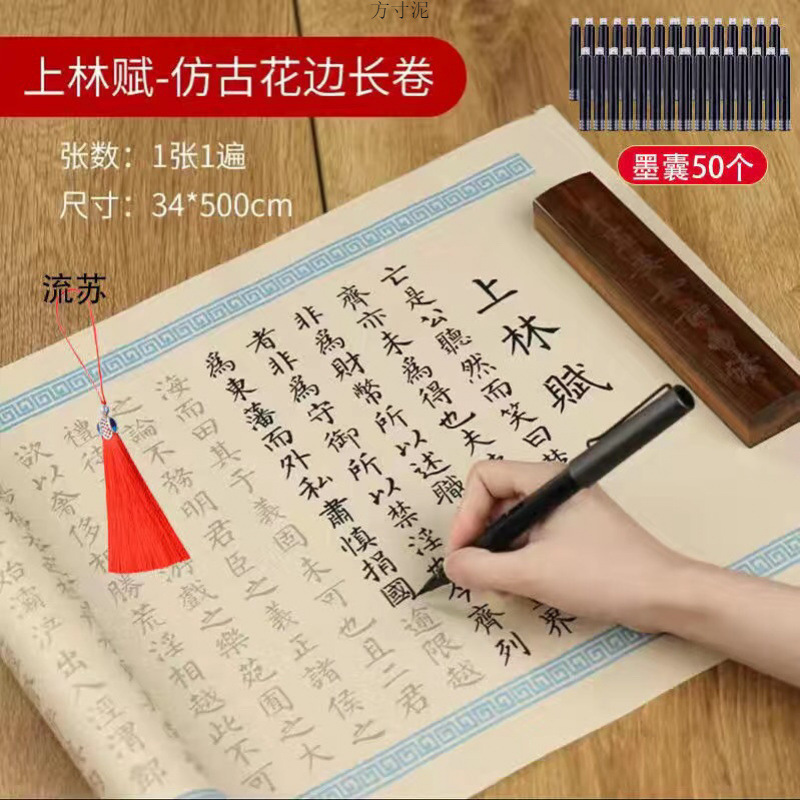 方寸泥
上林赋-仿古花边长卷
张数：1张1遍
尺寸：34*500cm
墨囊50个
流苏
上林賦
亡是公聽然而笑曰
齊亦未為得也夫
非為財幣所以述職界
者非為守御所以禁淫也今齊列
為東藩而外私肅慎捐國逾限越
海而田其于義固未可也且二君
之論不務明君臣之義正諸侯之
禮徒游戲之樂苑囿之大
欲以奢侈相勝荒淫相越此不可
始灞滻出入涇渭鄷